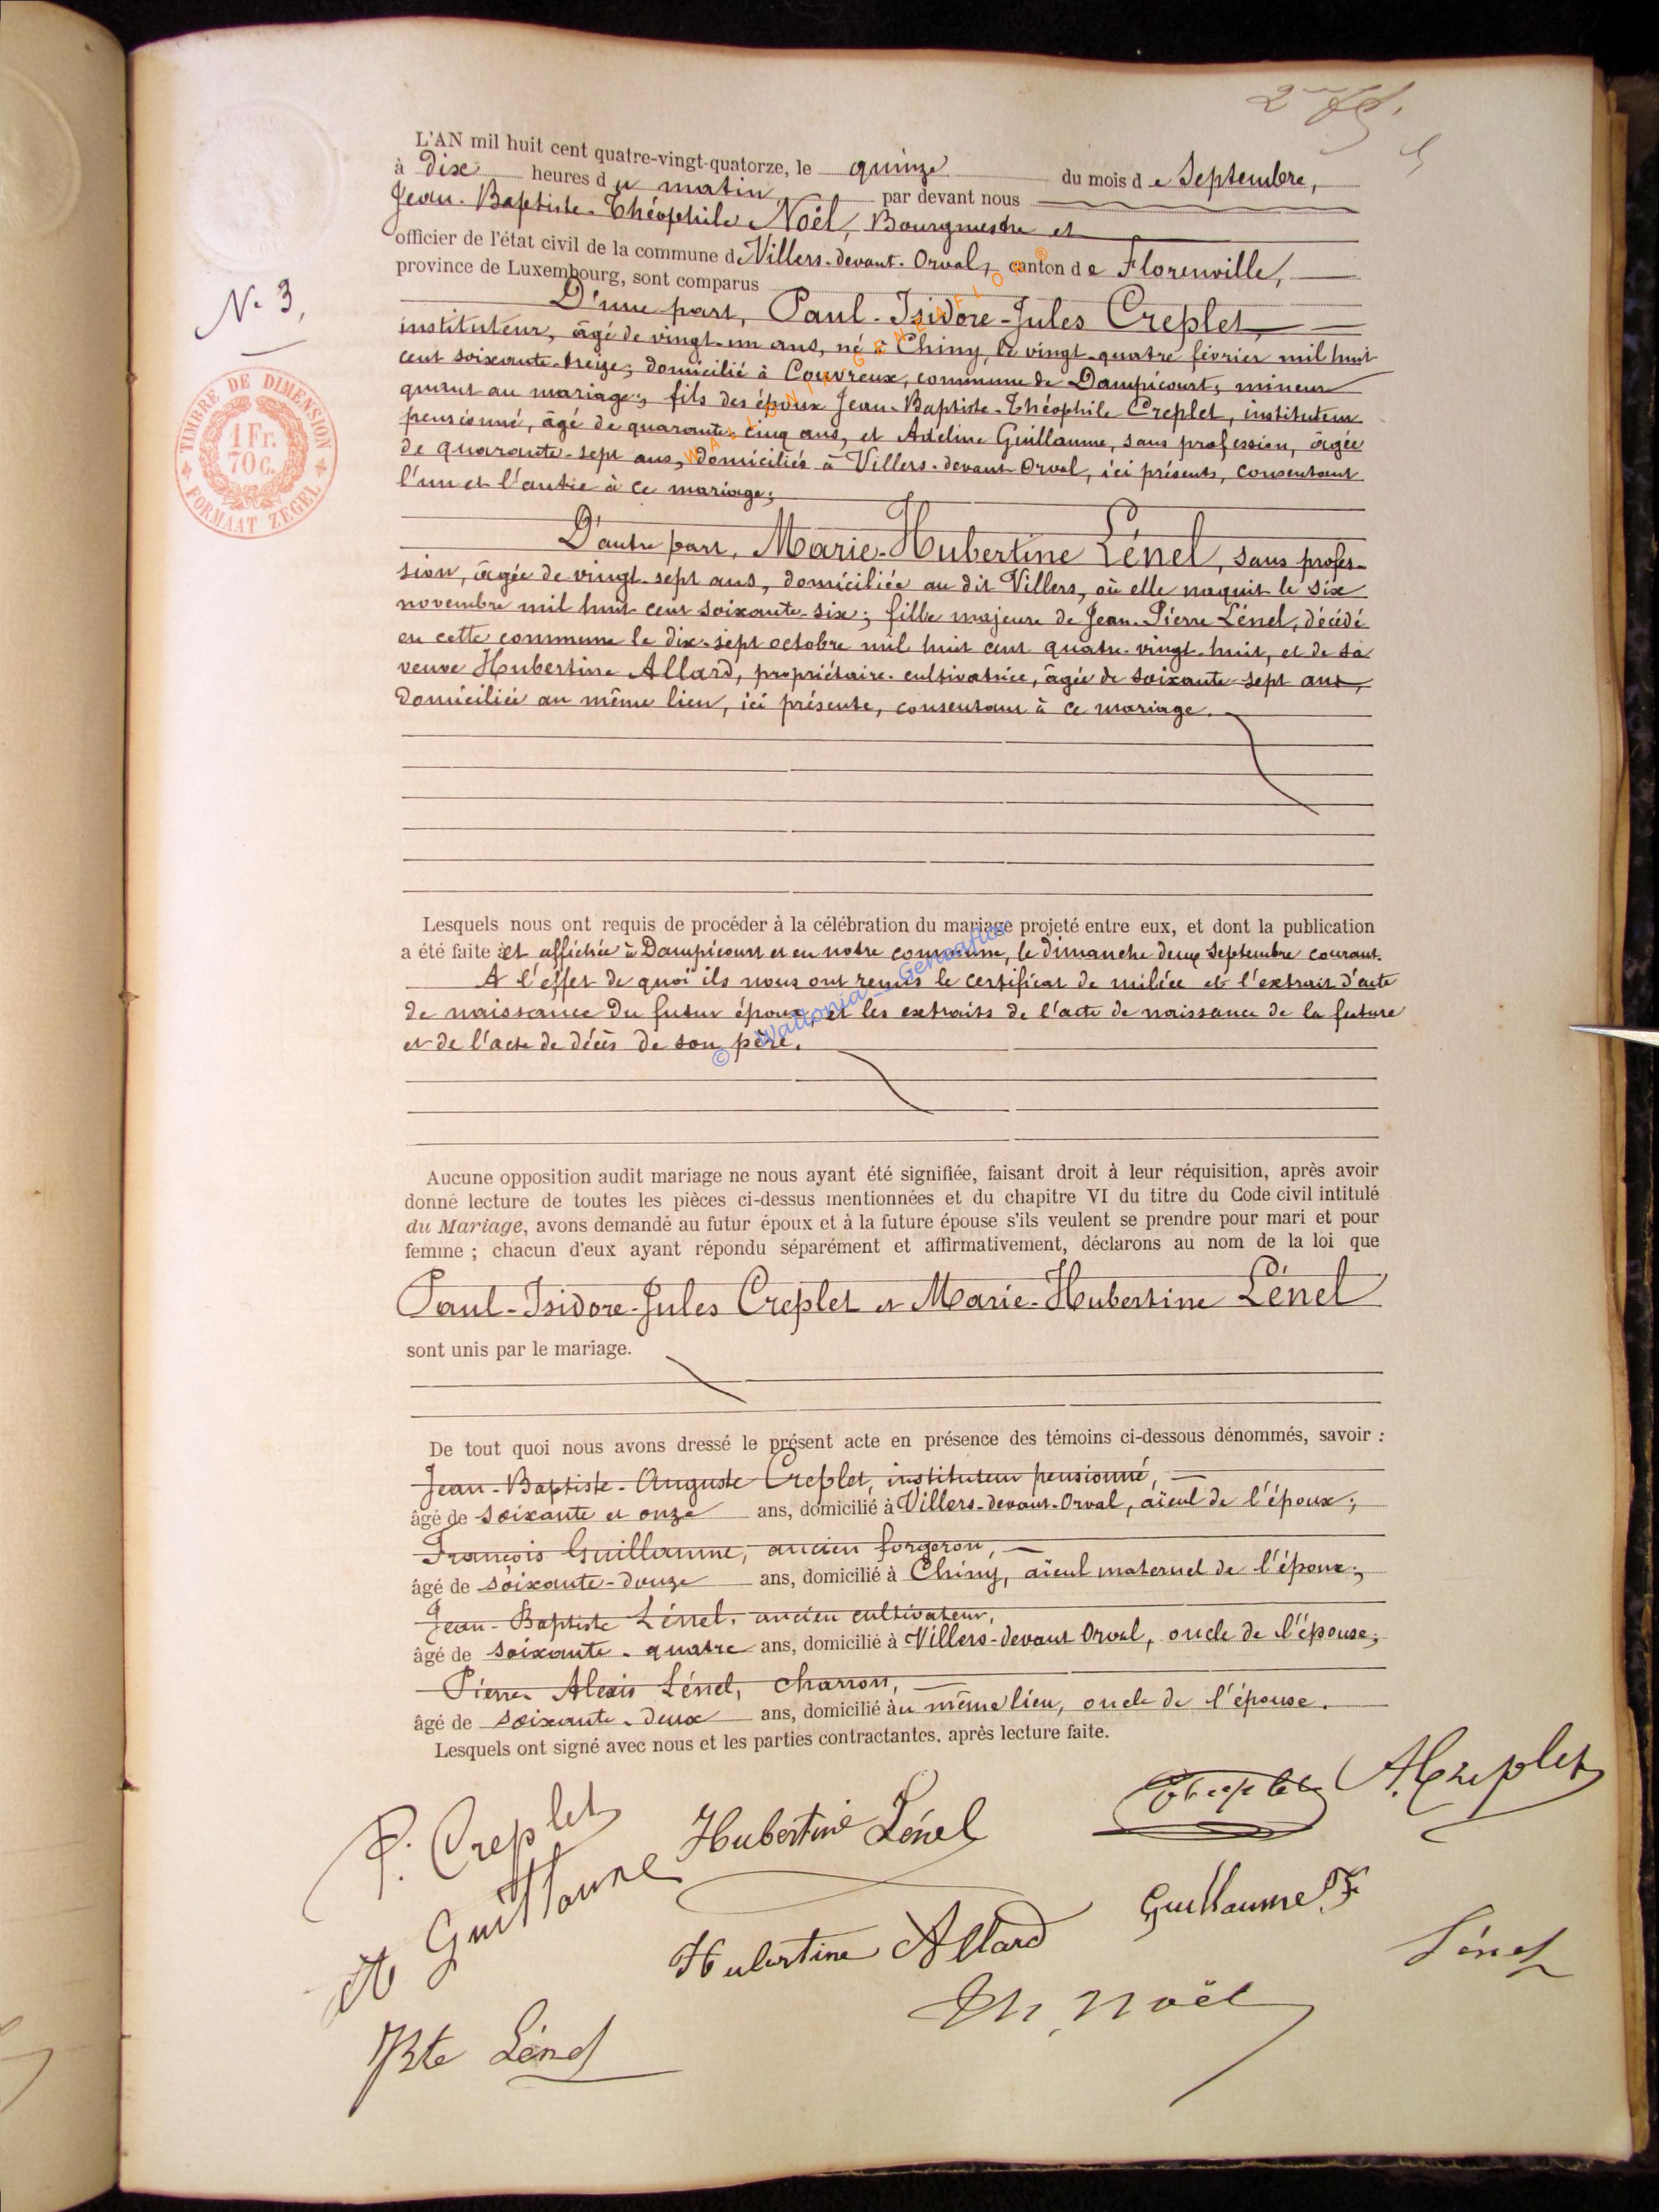 2me fd.
L'AN mil huit cent quatre-vingt-quatorze, le quinze du mois de Septembre,
à dix heures du matin, par devant nous
Jean-Baptiste-Théophile Noël, Bourgmestre et
officier de l'état civil de la commune de Villers-devant-Orval, canton de Florenville,
province de Luxembourg, sont comparus
N° 3,
D'une part, Paul-Isidore-Jules Creplet,
instituteur, âgé de vingt-un ans, né à Chiny, le vingt-quatre février mil huit
cent soixante-treize, domicilié à Couvreux, commune de Dampicourt, mineur
quant au mariage; fils des époux Jean-Baptiste-Théophile Creplet, instituteur
pensionné, âgé de quarante-cinq ans, et Adeline Guillaume, sans profession, âgée
de quarante-sept ans, domiciliés à Villers-devant-Orval, ici présents, consentant
l'un et l'autre à ce mariage;
TIMBRE DE DIMENSION
1 Fr.
70 C.
FORMAAT ZEGEL
D'autre part, Marie-Hubertine Lénel, sans profes-
sion, âgée de vingt-sept ans, domiciliée au dit Villers, où elle naquit le six
novembre mil huit cent soixante-six; fille majeure de Jean-Pierre Lénel, décédé
en cette commune le dix-sept octobre mil huit cent quatre-vingt-huit, et de sa
veuve Hubertine Allard, propriétaire-cultivatrice, âgée de soixante-sept ans,
domiciliée au même lieu, ici présente, consentant à ce mariage.
Lesquels nous ont requis de procéder à la célébration du mariage projeté entre eux, et dont la publication
a été faite et affichée à Dampicourt et en notre commune, le dimanche deux Septembre courant.
A l'effet de quoi ils nous ont remis le certificat de milice et l'extrait d'acte
de naissance du futur époux, et les extraits de l'acte de naissance de la future
et de l'acte de décès de son père.
© Wallonia - Geneaflor
Aucune opposition audit mariage ne nous ayant été signifiée, faisant droit à leur réquisition, après avoir
donné lecture de toutes les pièces ci-dessus mentionnées et du chapitre VI du titre du Code civil intitulé
du Mariage, avons demandé au futur époux et à la future épouse s'ils veulent se prendre pour mari et pour
femme ; chacun d'eux ayant répondu séparément et affirmativement, déclarons au nom de la loi que
Paul-Isidore-Jules Creplet et Marie-Hubertine Lénel
sont unis par le mariage.
De tout quoi nous avons dressé le présent acte en présence des témoins ci-dessous dénommés, savoir :
Jean-Baptiste-Auguste Creplet, instituteur pensionné,
âgé de soixante et onze ans, domicilié à Villers-devant-Orval, aïeul de l'époux;
François Guillaume, ancien forgeron,
âgé de soixante-douze ans, domicilié à Chiny, aïeul maternel de l'époux;
Jean-Baptiste Lénel, ancien cultivateur,
âgé de soixante-quatre ans, domicilié à Villers-devant Orval, oncle de l'épouse;
Pierre Alexis Lénel, charron,
âgé de soixante-deux ans, domicilié au même lieu, oncle de l'épouse.
Lesquels ont signé avec nous et les parties contractantes, après lecture faite.
P. Creplet
Hubertine Lénel
Creplet
A. Creplet
Guillaume
Hubertine Allard
Guillaume F
Lénel
JBte Lénel
Th. Noël